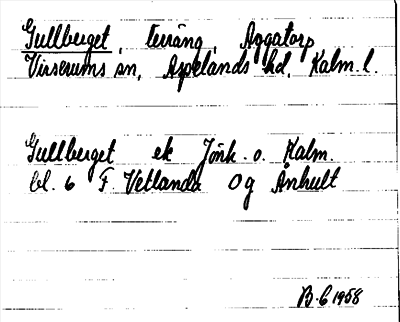 Gullberget, terräng, Aggatorp
Virserums sn, Aspelands hd, Kalm. l.
Gullberget ek Jönk. o. Kalm.
bl. 6 F. Vetlanda Og Århult
B. E 1958